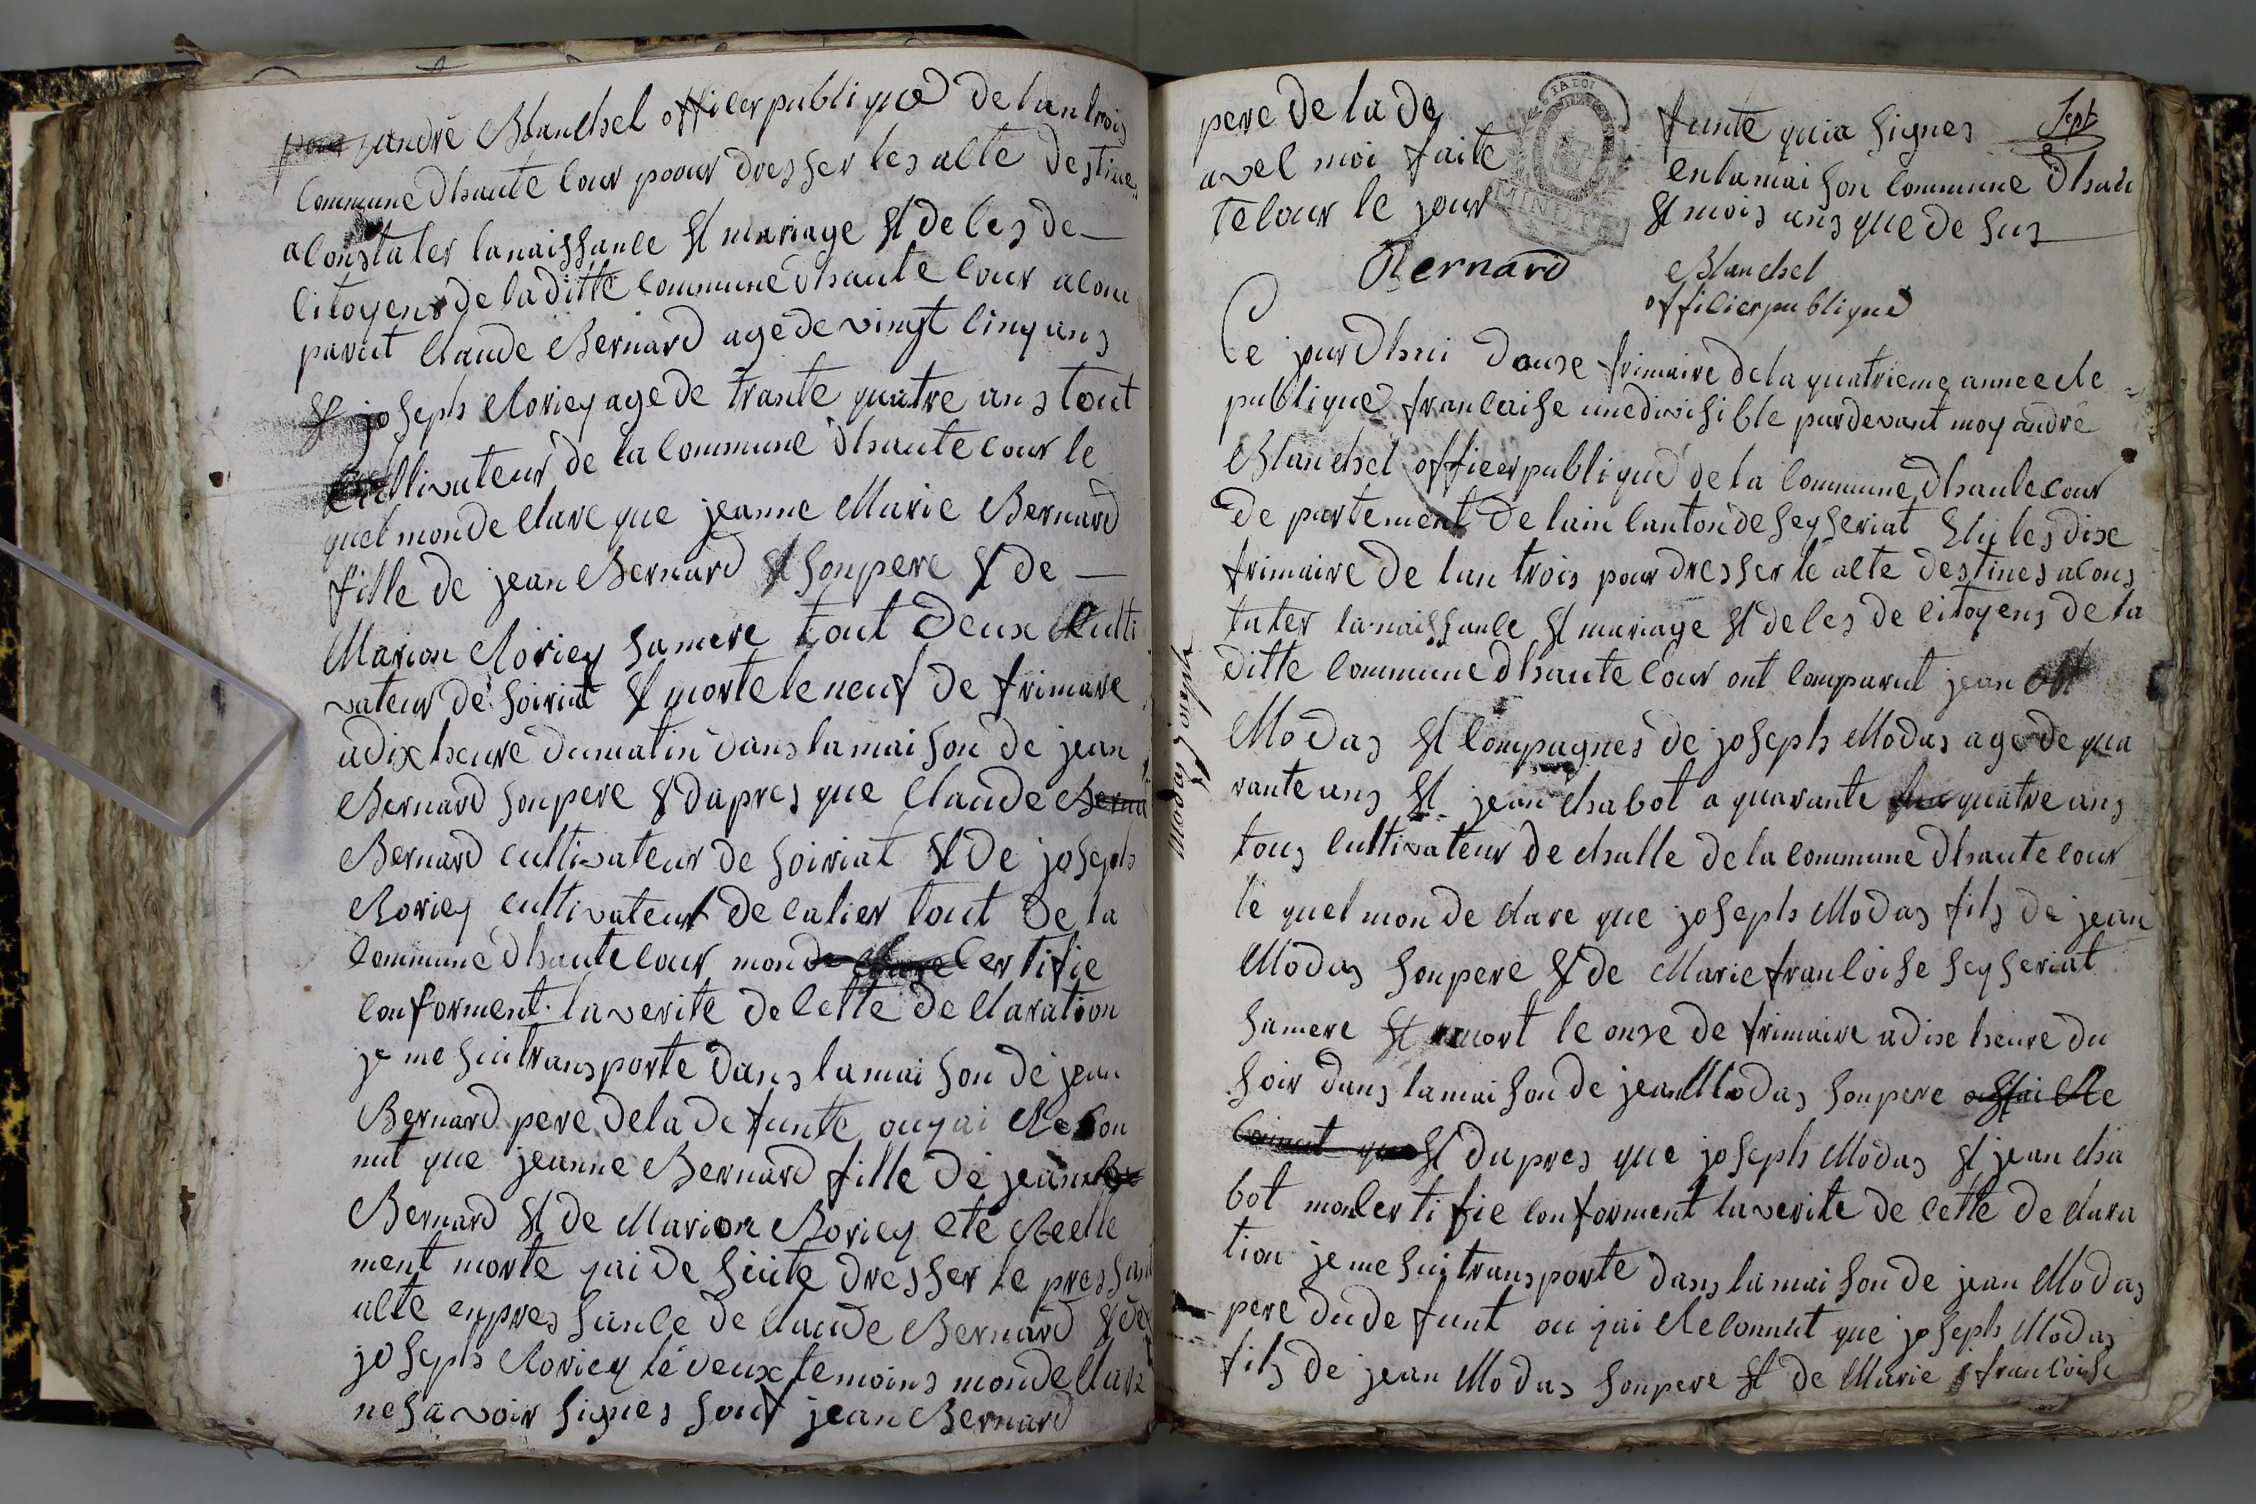 andré Blanchet officier publique de lan trois
Commune dhaute Cour poour dresser les acte destines
a Constater la naissance et mariage et deces de
Citoyens de la ditte Commune dhaute Cour a Com
parut Claude Bernard age de vingt Cinq ans
et joseph Roriey age de trante quatre ans tout
Cultivateur de la Commune dhaute cour le
quel mon de Clare que jeanne Marie Bernard
fille de jean Bernard et son pere et de
Marion Roriey sa mere tout deux Culti
vateur de soiriat et morte le neuf de frimare
a dix heure du matin dans la maison de jean
Bernard son pere et dapres que Claude Berna
Bernard cultivateur de soiriat et de joseph
Roriey cultivateur de calier tout de la
Commune dhaute cour mon de Clare Certifie
Conforment la verite de Cette de Claration
je me sui transporte dans la mai son de jean
Bernard pere de la de funte ou jai Recon
nut que jeanne Bernard fille de jean
Bernard et de Marion Roriey ete Reelle
ment morte jai de suite dresser le pressant
acte enpressance de Claude Bernard et de
joseph Roriey le deux temoins mon de Clare
ne savoir signes souf jean Bernard
pere de la de funte quia signes
Sept
avec moi faite en la mai son Commune dhau
te Cour le jour et mois ans que de sus
Bernard Blanchet
officier publique
Ce jourdhui douse frimaire de la quatrieme annee Re
publique francaise une divisible pardevant moy andré
Blanchet officier publique de la Commune dhaute cour
de partement de lain Canton de seyseriat Elu les dix
frimaire de lan trois pour dresser le acte destines a Cons
tater la naissance et mariage et de Ces de Citoyens de la
ditte Commune dhaute Cour ont Comparut jean
Modas et Compagnes de joseph Modas age de qua
rante ans et jean Chabot a quarante quatre ans
tous Cultivateur de challe de la commune dhaute cour
le quel mon de Clare que joseph Modas fils de jean
Modas son pere et de Marie francoise seyseriat
sa mere et mort le onze de frimaire a dix heure du
soir dans la maison de jean Modas son pere
et dapres que joseph Modas et jean Cha
bot mon Certifie Conforment la verite de Cette de Clara
tion je me sui transporte dans la mai son de jean Modas
pere du de funt ou jai Reconnut que joseph Modas
fils de jean Modas son pere et de Marie francoise